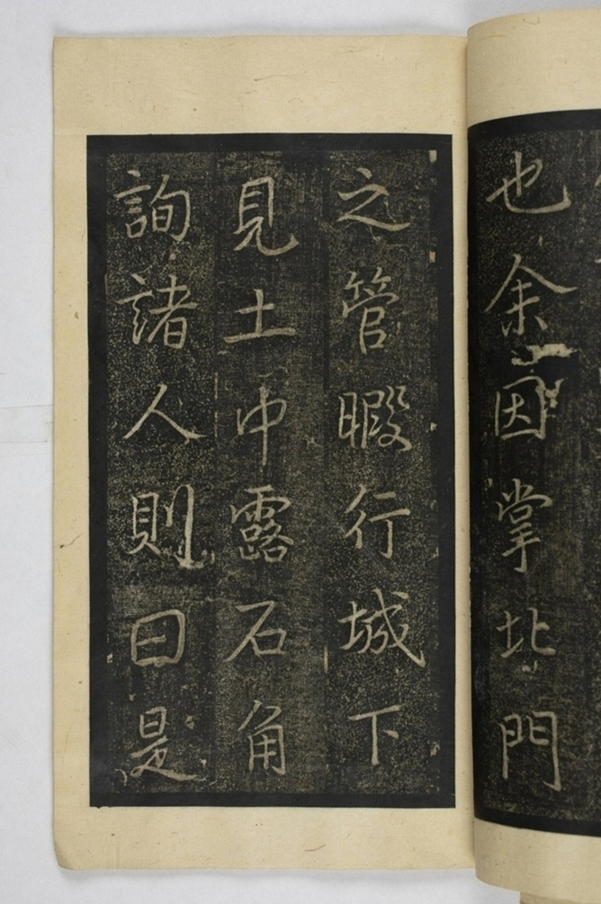 也余因掌北門
之管暇行城下
見土中露石角
詢諸人則曰是